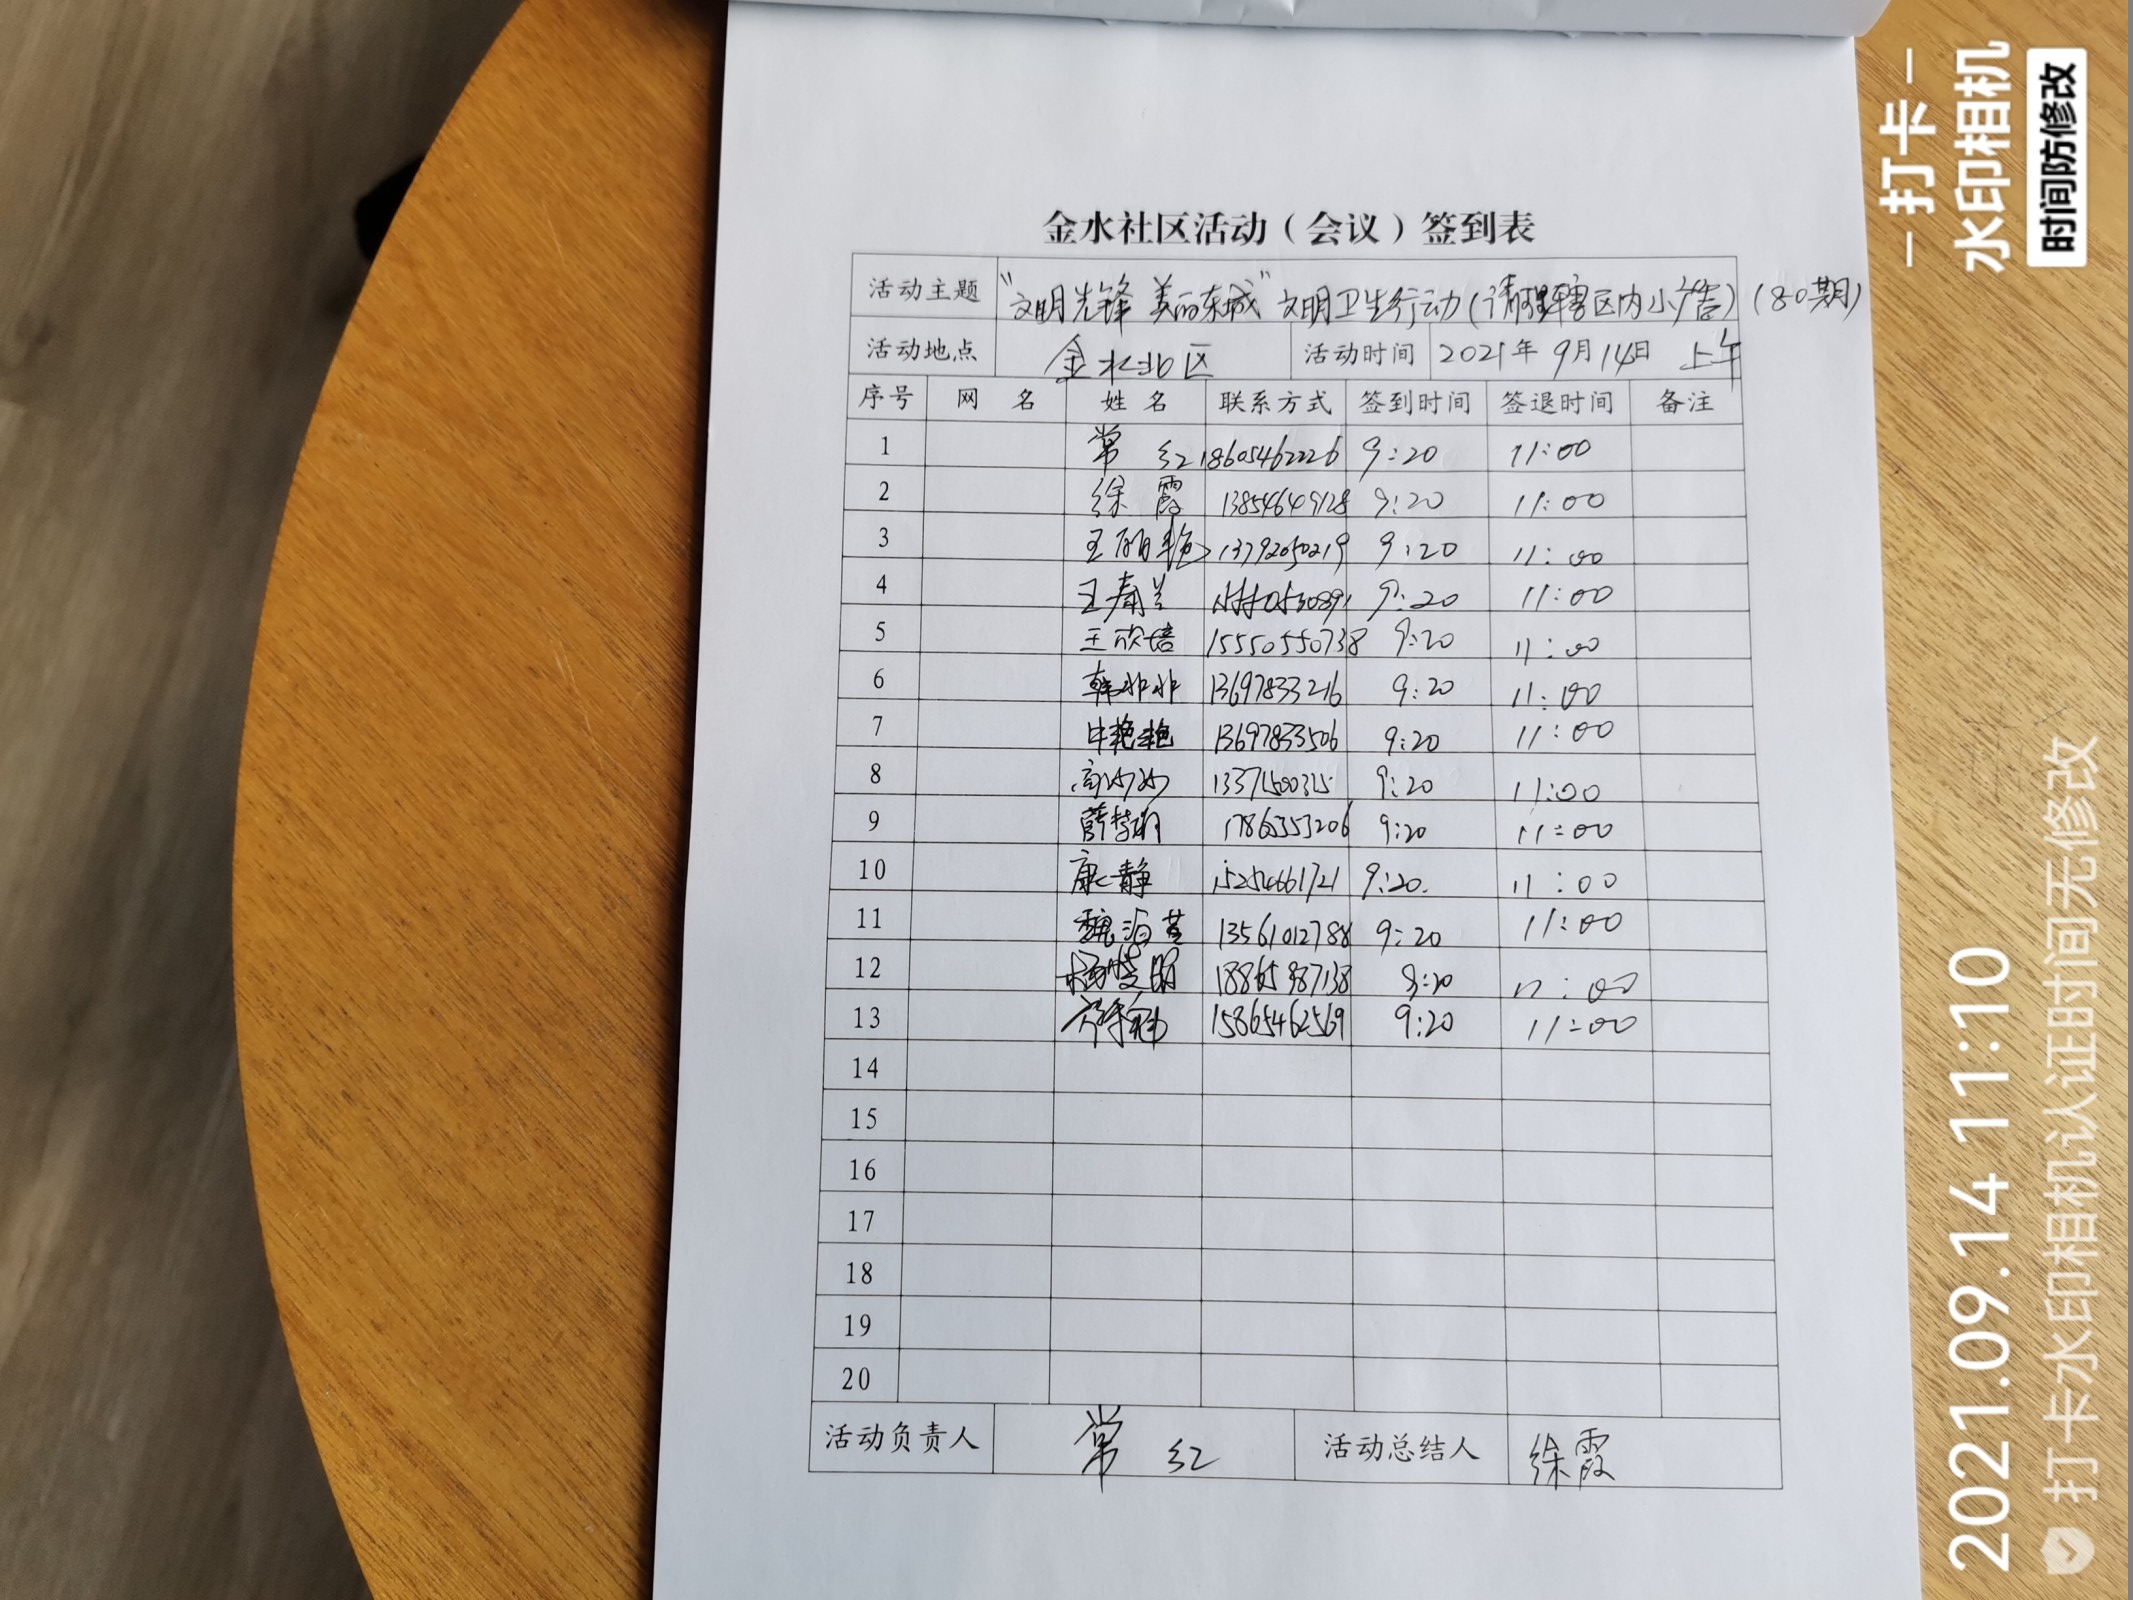 金水社区活动（会议）签到表
活动主题 "文明先锋 美丽东城"文明卫生行动(清理辖区内小广告)(80期)
活动地点 金水北区 活动时间 2021年9月14日 上午
序号 网 名 姓 名 联系方式 签到时间 签退时间 备注
1 常 红 18605462226 9:20 11:00
2 徐 霞 13854649128 9:20 11:00
3 王丽艳 13792050219 9:20 11:00
4 王春兰 9:20 11:00
5 王欣培 15550550738 9:20 11:00
6 韩非非 13697833216 9:20 11:00
7 牛艳艳 13697833506 9:20 11:00
8 高 9:20 11:00
9 薛 17865353206 9:20 11:00
10 康静 15254661721 9:20. 11:00
11 魏 13561012788 9:20 11:00
12 杨 18865987138 9:20 11:00
13 15865462569 9:20 11:00
14
15
16
17
18
19
20
活动负责人 常 红 活动总结人 徐霞
打卡
水印相机
时间防修改
2021.09.14 11:10
打卡水印相机认证时间无修改